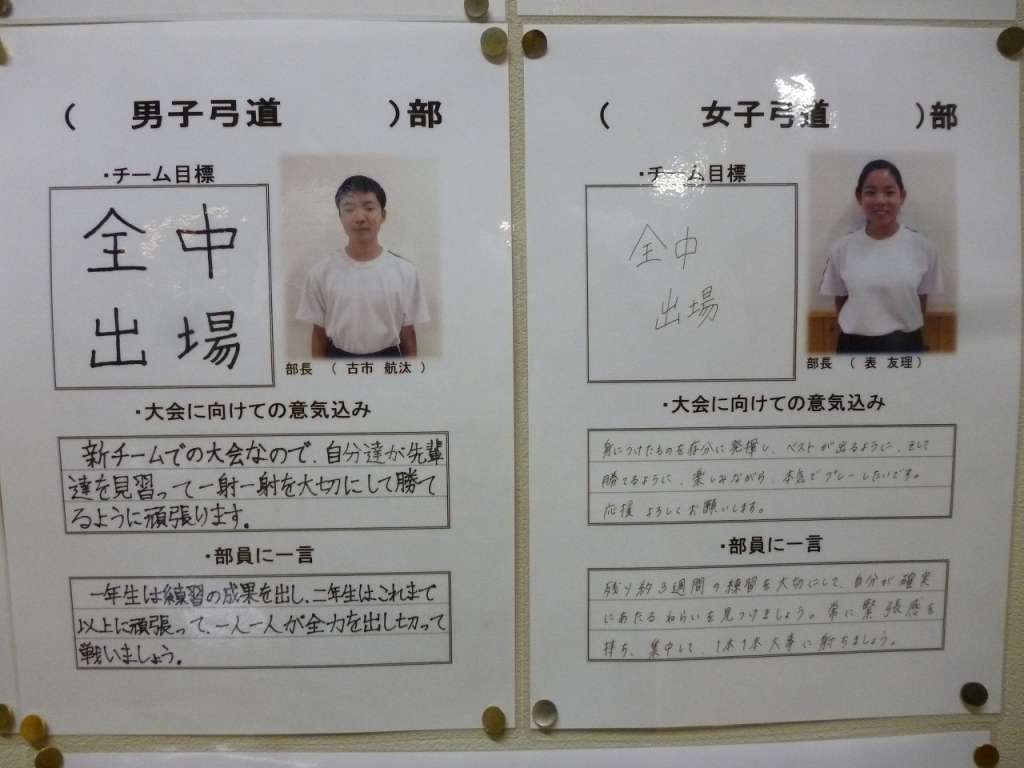 （ 男子弓道 ）部
・チーム目標
全中
出場
部長 （ 古市 航汰 ）
・大会に向けての意気込み
新チームでの大会なので、自分達が先輩
達を見習って一射一射を大切にして勝て
るように頑張ります。
・部員に一言
一年生は練習の成果を出し、二年生はこれまで
以上に頑張って、一人一人が全力を出し切って
戦いましょう。
（ 女子弓道 ）部
・チーム目標
全中
出場
部長 （ 表 友理 ）
・大会に向けての意気込み
身につけたものを存分に発揮し、ベストが出るように、そして
勝てるように、楽しみながら、本気でプレーしたいです。
応援 よろしくお願いします。
・部員に一言
残り約3週間の練習を大切にして、自分が確実
にあたる ねらいを見つけましょう。常に緊張感を
持ち、集中して、1本1本大事に射ちましょう。